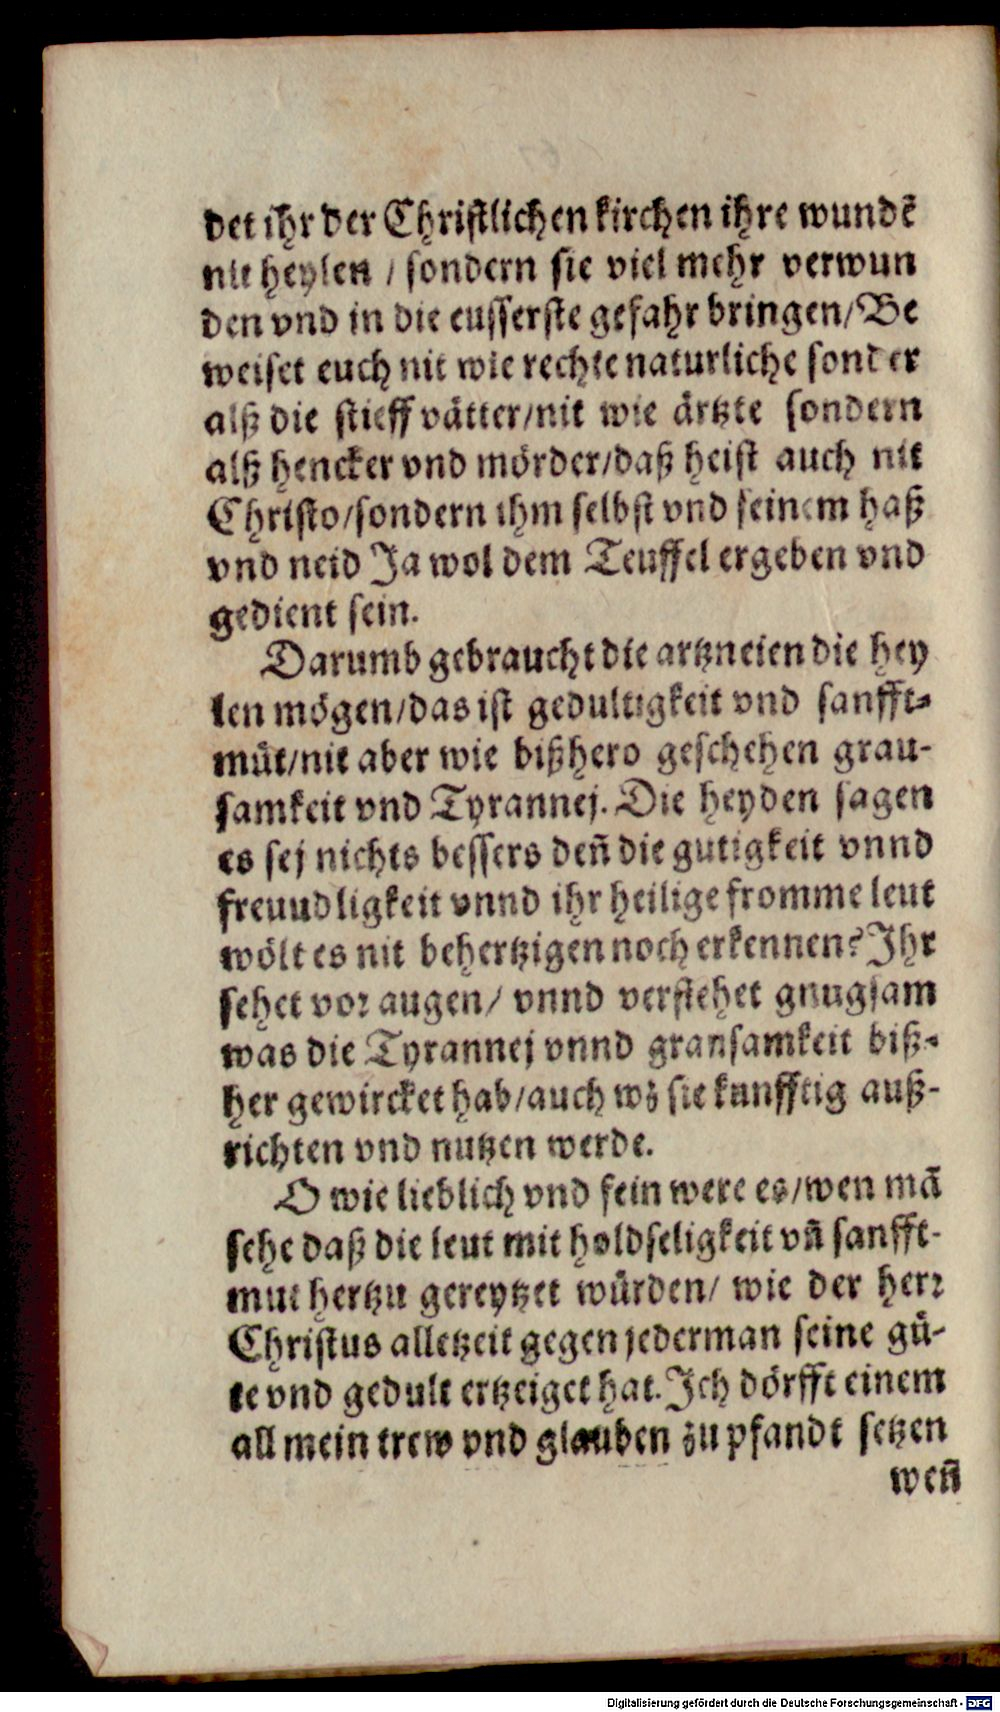 det ihr der Christlichen kirchen ihre wundē
nit heylen / sondern sie viel mehr verwun
den vnd in die eusserste gefahr bringen/Be
weiset euch nit wie rechte naturliche sonder
alß die stieff vätter/nit wie ärtzte sondern
alß hencker vnd mörder/daß heist auch nit
Christo/sondern ihm selbst vnd seinem haß
vnd neid Ja wol dem Teuffel ergeben vnd
gedient sein.
Darumb gebraucht die artzneien die hey
len mögen/das ist gedultigkeit vnd sanfft-
müt/nit aber wie bißhero geschehen grau-
samkeit vnd Tyrannej. Die heyden sagen
es sej nichts bessers den̄ die gutigkeit vnnd
freuudligkeit vnnd ihr heilige fromme leut
wölt es nit behertzigen noch erkennen? Ihr
sehet vor augen/ vnnd verstehet gnugsam
was die Tyrannej vnnd gransamkeit biß-
her gewircket hab/auch wz sie kunfftig auß-
richten vnd nutzen werde.
O wie lieblich vnd fein were es/wen mā
sehe daß die leut mit holdseligkeit vn̄ sanfft-
mut hertzu gereytzet würden/ wie der herr
Christus alletzeit gegen jederman seine gü-
te vnd gedult ertzeiget hat. Ich dörfft einem
all mein trew vnd glauben zu pfandt setzen
wen̄
Digitalisierung gefördert durch die Deutsche Forschungsgemeinschaft - DFG